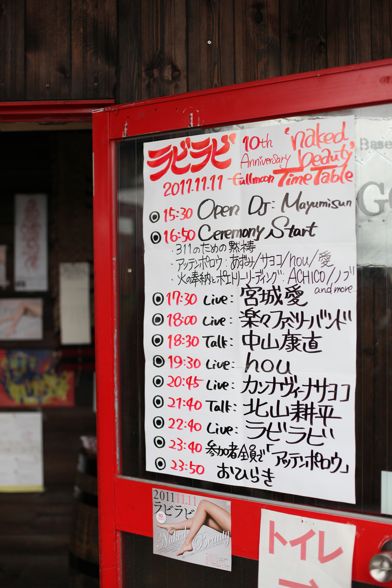 ラビラビ 10th Anniversary 'naked beauty'
2011.11.11 Fullmoon Time Table
15:30 Open DJ: Mayumisun
16:50 Ceremony Start
・311のための黙祷
・アッテンポロウ: あおみ/サヨコ/hou/愛
・火の奉納とポエトリーリーディング: ACHICO/ノブ
and more
17:30 Live: 宮城愛
18:00 Live: 楽々ファミリーバンド
18:30 Talk: 中山康直
19:30 Live: hou
20:45 Live: カンナヴィナサヨコ
21:40 Talk: 北山耕平
22:40 Live: ラビラビ
23:40 参加者全員で「アッテンポロウ」
23:50 おひらき
2011.11.11
ラビラビ
Naked Beauty
トイレ